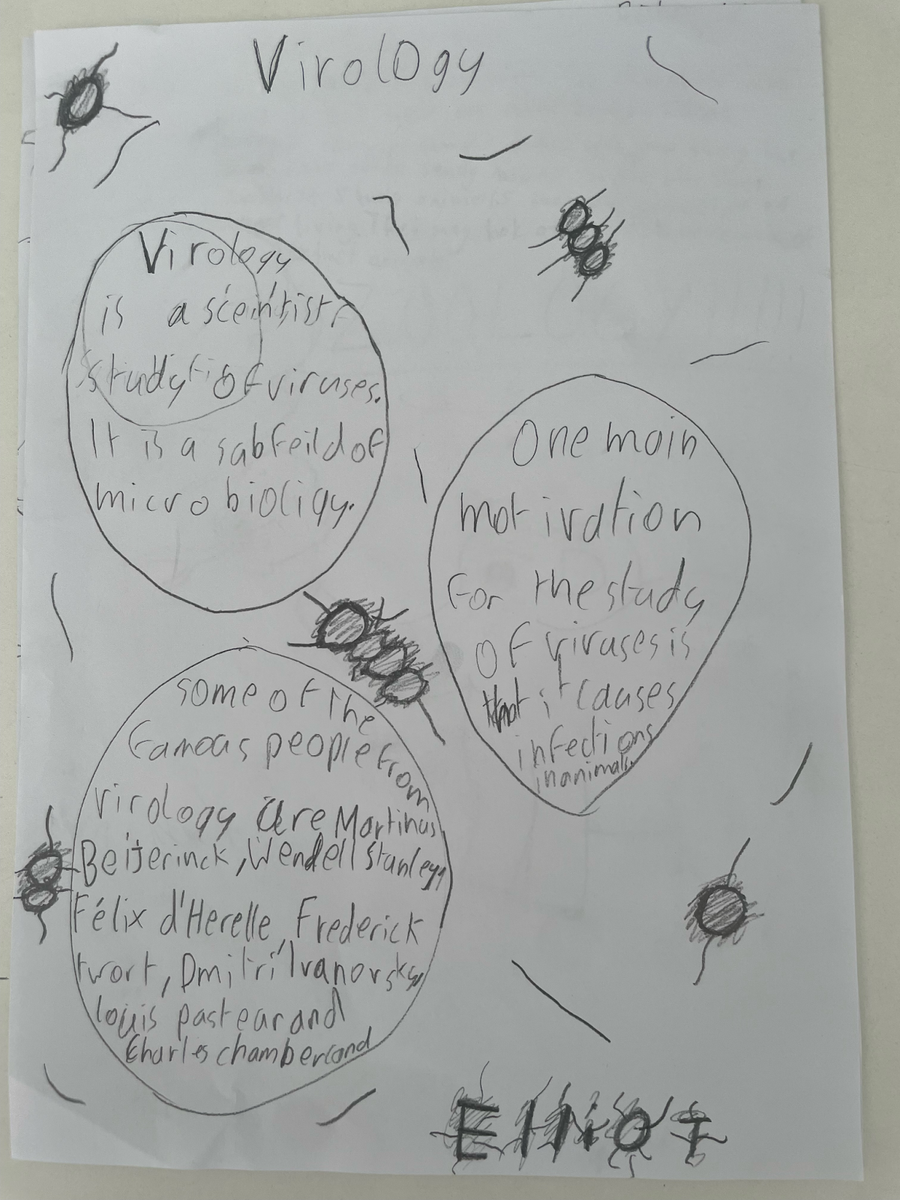 VirolOgy
Virology
is a scientist
study of viruses.
It is a sabfeild of
microbioligy.
One main
motivation
For the study
OF viruses is
that it causes
infections
in animals
some of the
famous people from
virology are Martinus
Beijerinck, Wendell Stanley,
Félix d'Herelle, Frederick
twort, Dmitri Ivanovsky
louis pastear and
Charles chamberland